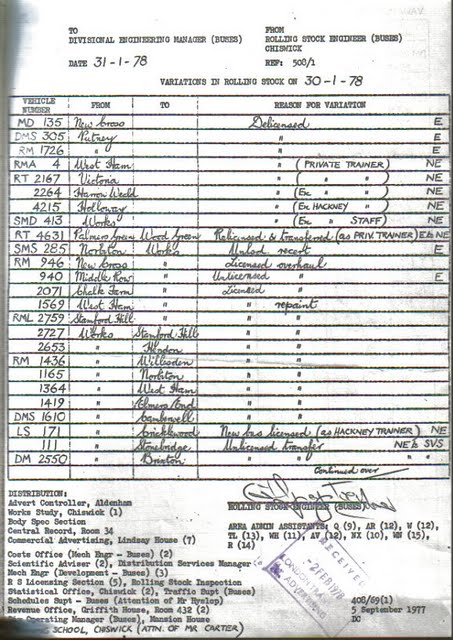 TO FROM
DIVISIONAL ENGINEERING MANAGER (BUSES) ROLLING STOCK ENGINEER (BUSES)
CHISWICK
DATE 31-1-78 REF: 508/1
VARIATIONS IN ROLLING STOCK ON 30-1-78
VEHICLE NUMBER FROM TO REASON FOR VARIATION
MD 135 New Cross Delicensed E
DMS 305 Putney " E
RM 1726 " " E
RMA 4 West Ham " (PRIVATE TRAINER) NE
RT 2167 Victoria " ( " " ) NE
2264 Harrow Weald " (Ex " " ) NE
4215 Holloway " (Ex HACKNEY " ) NE
SMD 413 Works " (Ex " STAFF) NE
RT 4631 Palmers Green Wood Green Relicensed & transferred (as PRIV. TRAINER) E to NE
SMS 285 Norbiton Works Unlsd. recert E
RM 946 New Cross " Licensed overhaul
940 Middle Row " Unlicensed " E
2071 Chalk Farm " Licensed "
1569 West Ham " " repaint
RML 2759 Stamford Hill " " "
2727 Works Stamford Hill " "
2653 " Hendon " "
RM 1436 " Willesden " "
1165 " Norbiton " "
1364 " West Ham " "
1419 " Elmers End " "
DMS 1610 " Camberwell " "
LS 171 " Cricklewood New bus licensed (as HACKNEY TRAINER) NE
111 " Stonebridge Unlicensed transfer NE's SVS
DM 2550 " Brixton " " " "
Continued over
DISTRIBUTION:
Advert Controller, Aldenham
Works Study, Chiswick (1)
Body Spec Section
Central Record, Room 34
Commercial Advertising, Lindsay House (7)
ROLLING STOCK ENGINEER (BUSES)
AREA ADMIN ASSISTANTS: Q (9), AR (12), W (12),
TL (13), WH (11), AV (12), NX (10), WN (15),
R (14)
Costs Office (Mech Engr - Buses) (2)
Scientific Adviser (2), Distribution Services Manager
Mech Engr (Development - Buses) (3)
R S Licensing Section (5), Rolling Stock Inspection
Statistical Office, Chiswick (2), Traffic Supt (Buses)
Schedules Supt - Buses (Attention of Mr Hyslop)
Revenue Office, Griffith House, Room 432 (2)
Operating Manager (Buses), Mansion House
SCHOOL, CHISWICK (ATTN. OF MR CARTER)
RECEIVED
2 FEB 1978
408/69(1)
5 September 1977
DC